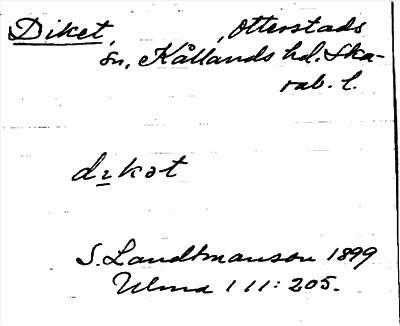 Diket, , Otterstads
sn, Kållands hd. Ska-
rab. l.
dɩkət
S. Landtmanson 1899
Ulma 111: 205.